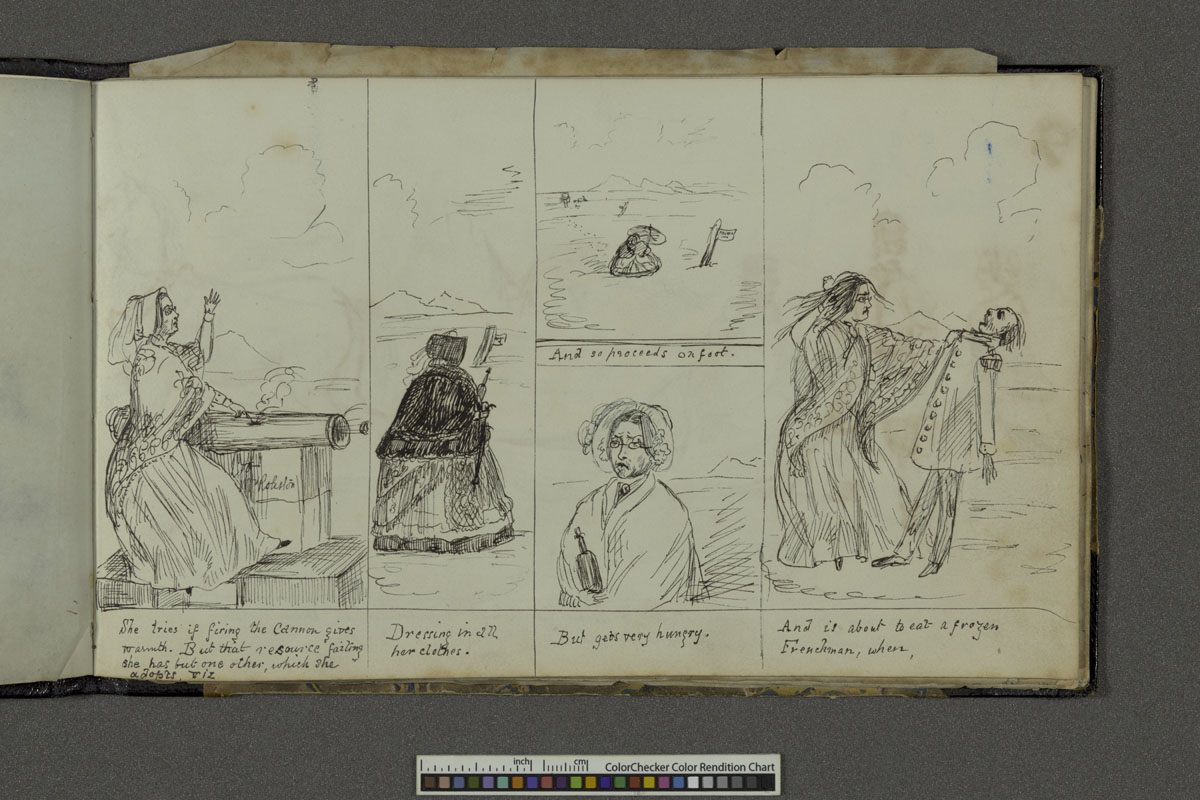 She tries if firing the Cannon gives
warmth. But that resource failing
she has but one other, which she
adopts, viz
Dressing in all
her clothes.
And so proceeds on foot.
But gets very hungry.
And is about to eat a frozen
Frenchman, when,
inch
cm
ColorChecker Color Rendition Chart